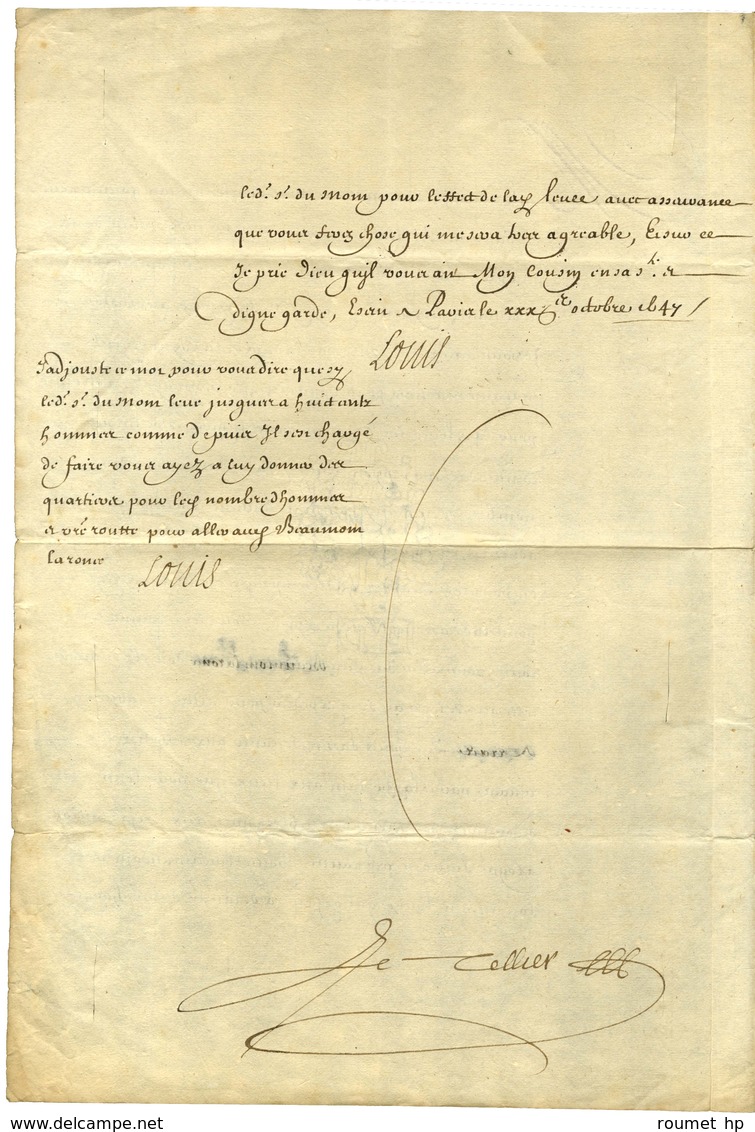 led.t s.r du Mom pour leffect de lad. levee avec asseurance
que vous ferez chose qui me sera tres agreable, Et sur ce
Je prie Dieu qu'jl vous ait Mon Cousin en sa s.te et
digne garde, Escrit a Paris le xxx.e octobre 1647
Louis
J'adjouste ce mot pour vous dire que sy
led.t s.r du Mom leve jusques a huict cantz
hommes comme depuis Jl s'en chargé
de faire vous ayez a luy donner des
quartiers pour led. nombre d'hommes
et v're routte pour aller au d. Beaumom
la ronce
Louis
Le Tellier
www.delcampe.net
roumet hp